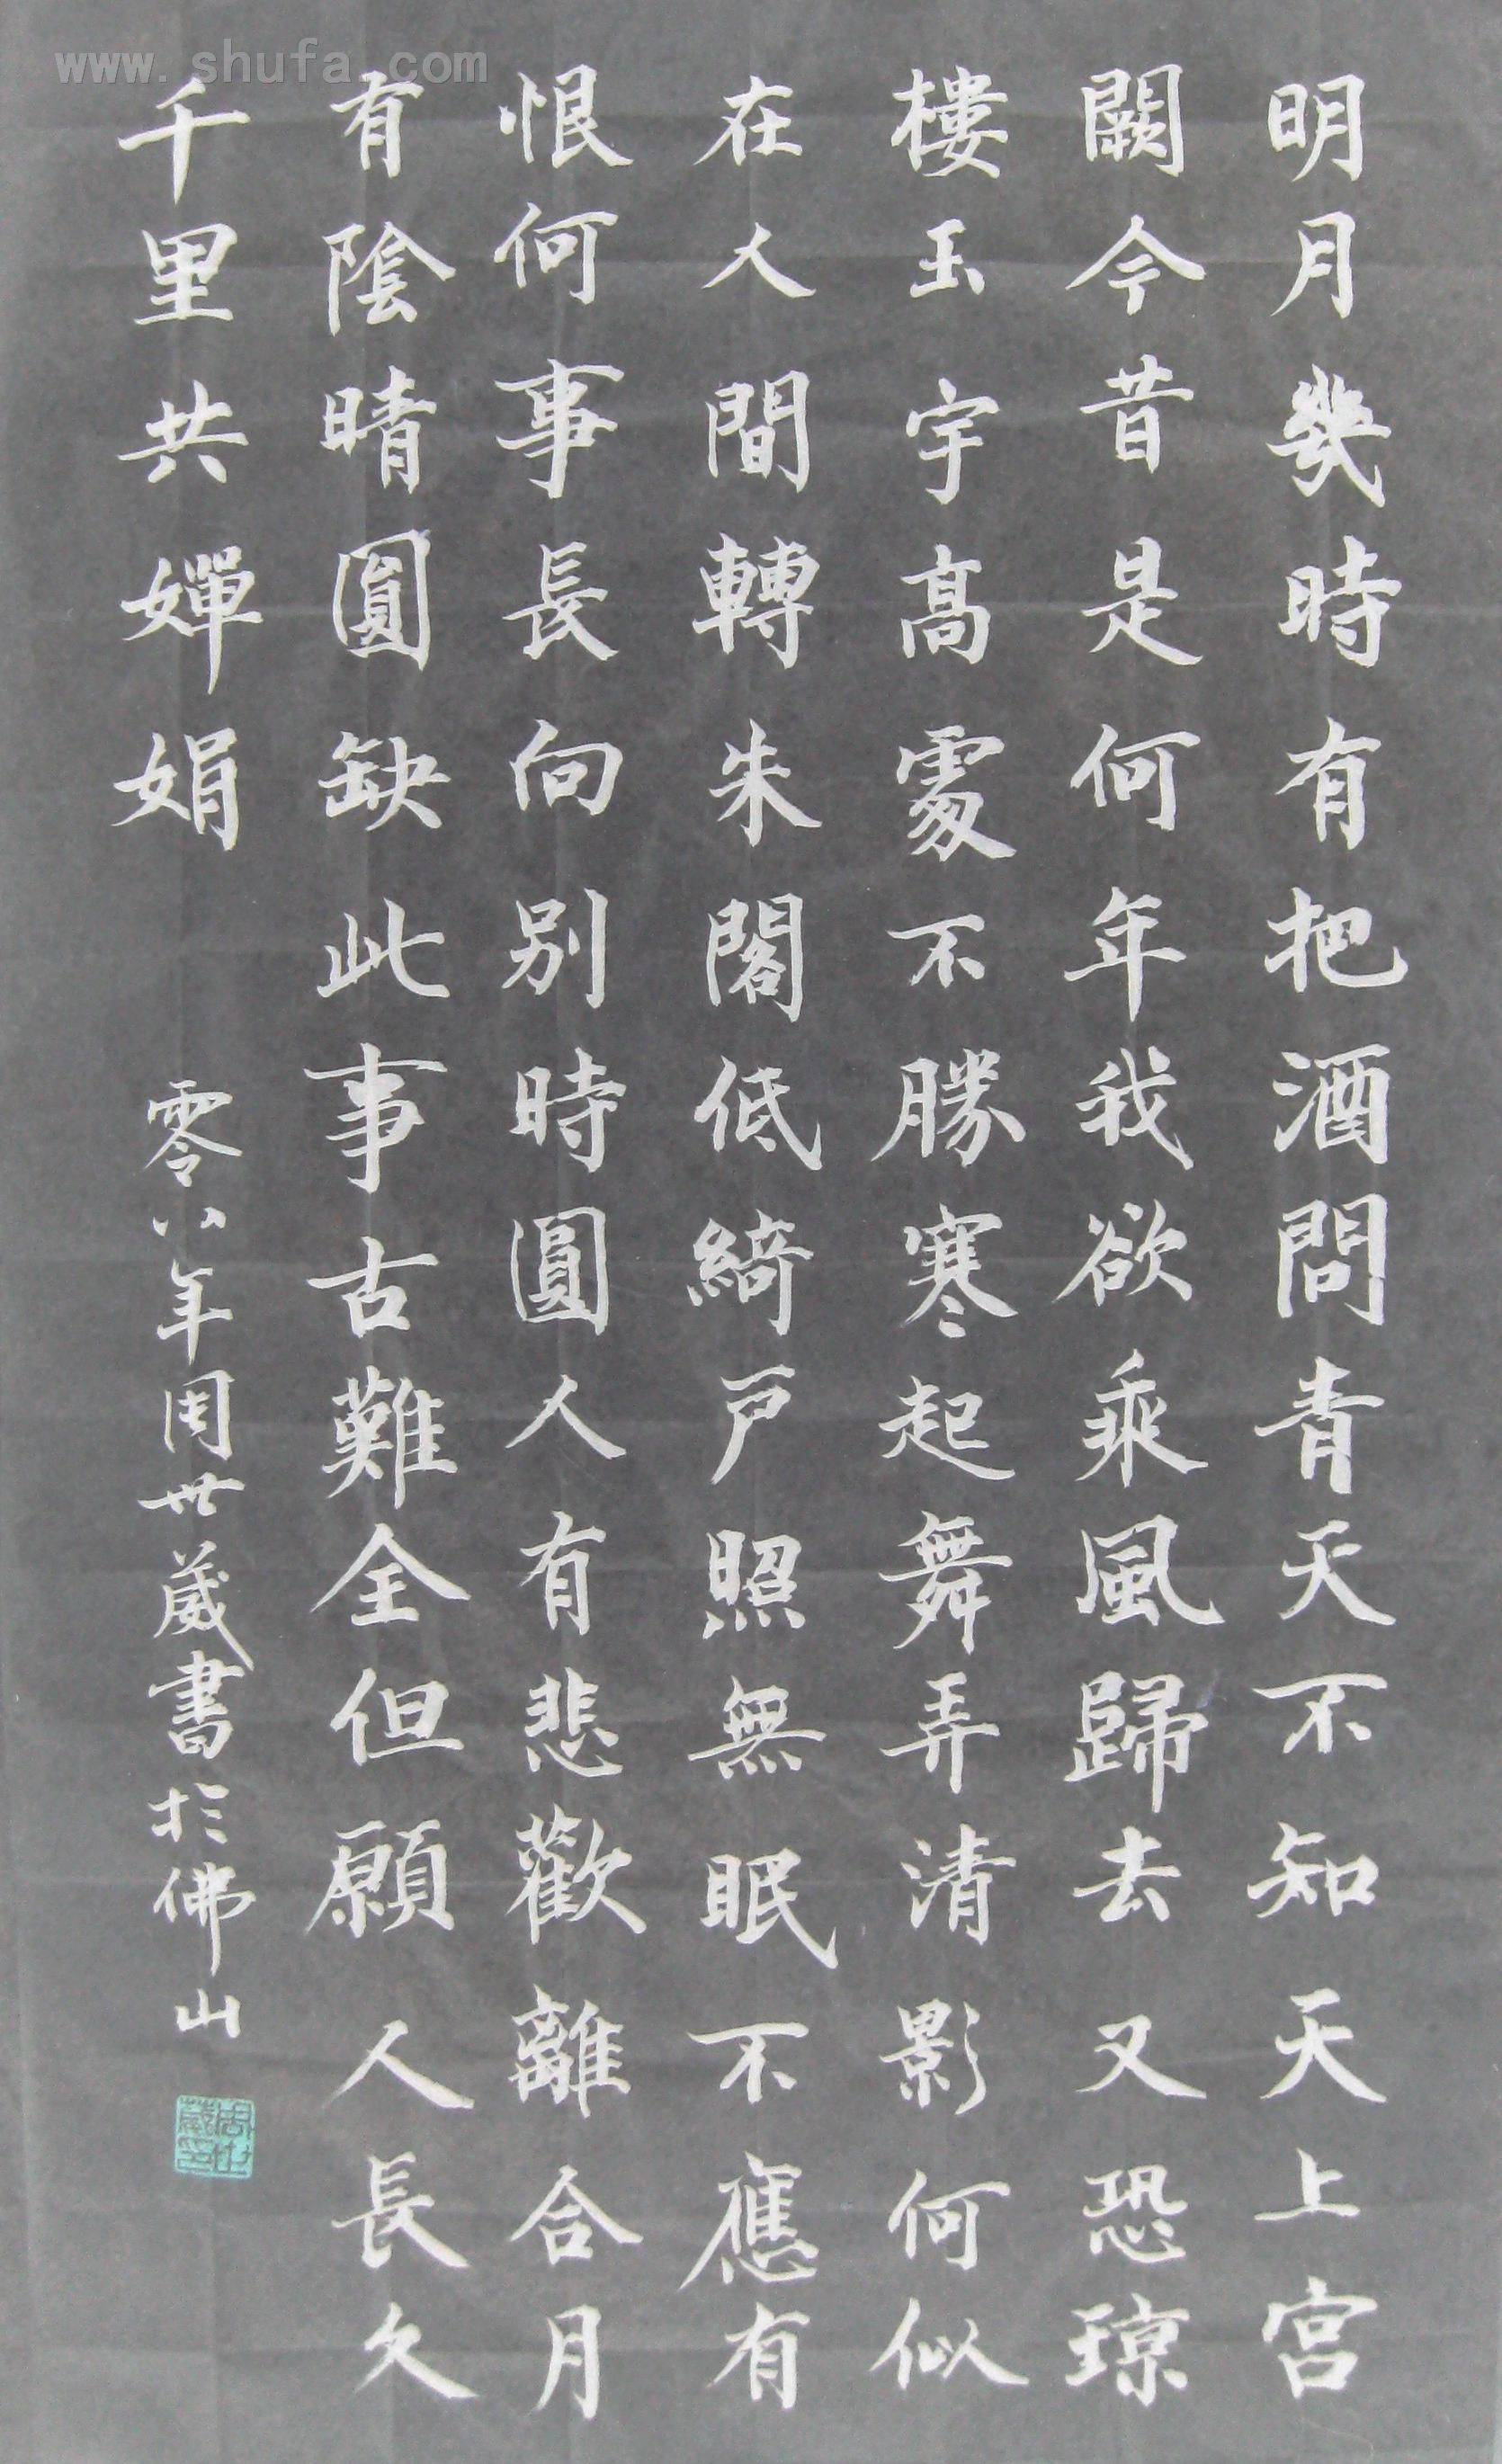 www.shufa.com
明月幾時有把酒問青天不知天上宮
闕今昔是何年我欲乘風歸去又恐琼
樓玉宇高處不勝寒起舞弄清影何似
在人間轉朱閣低綺戶照無眠不應有
恨何事長向別時圓人有悲歡離合月
有陰晴圓缺此事古難全但願人長久
千里共嬋娟
零八年周世葳書於佛山
周世葳印